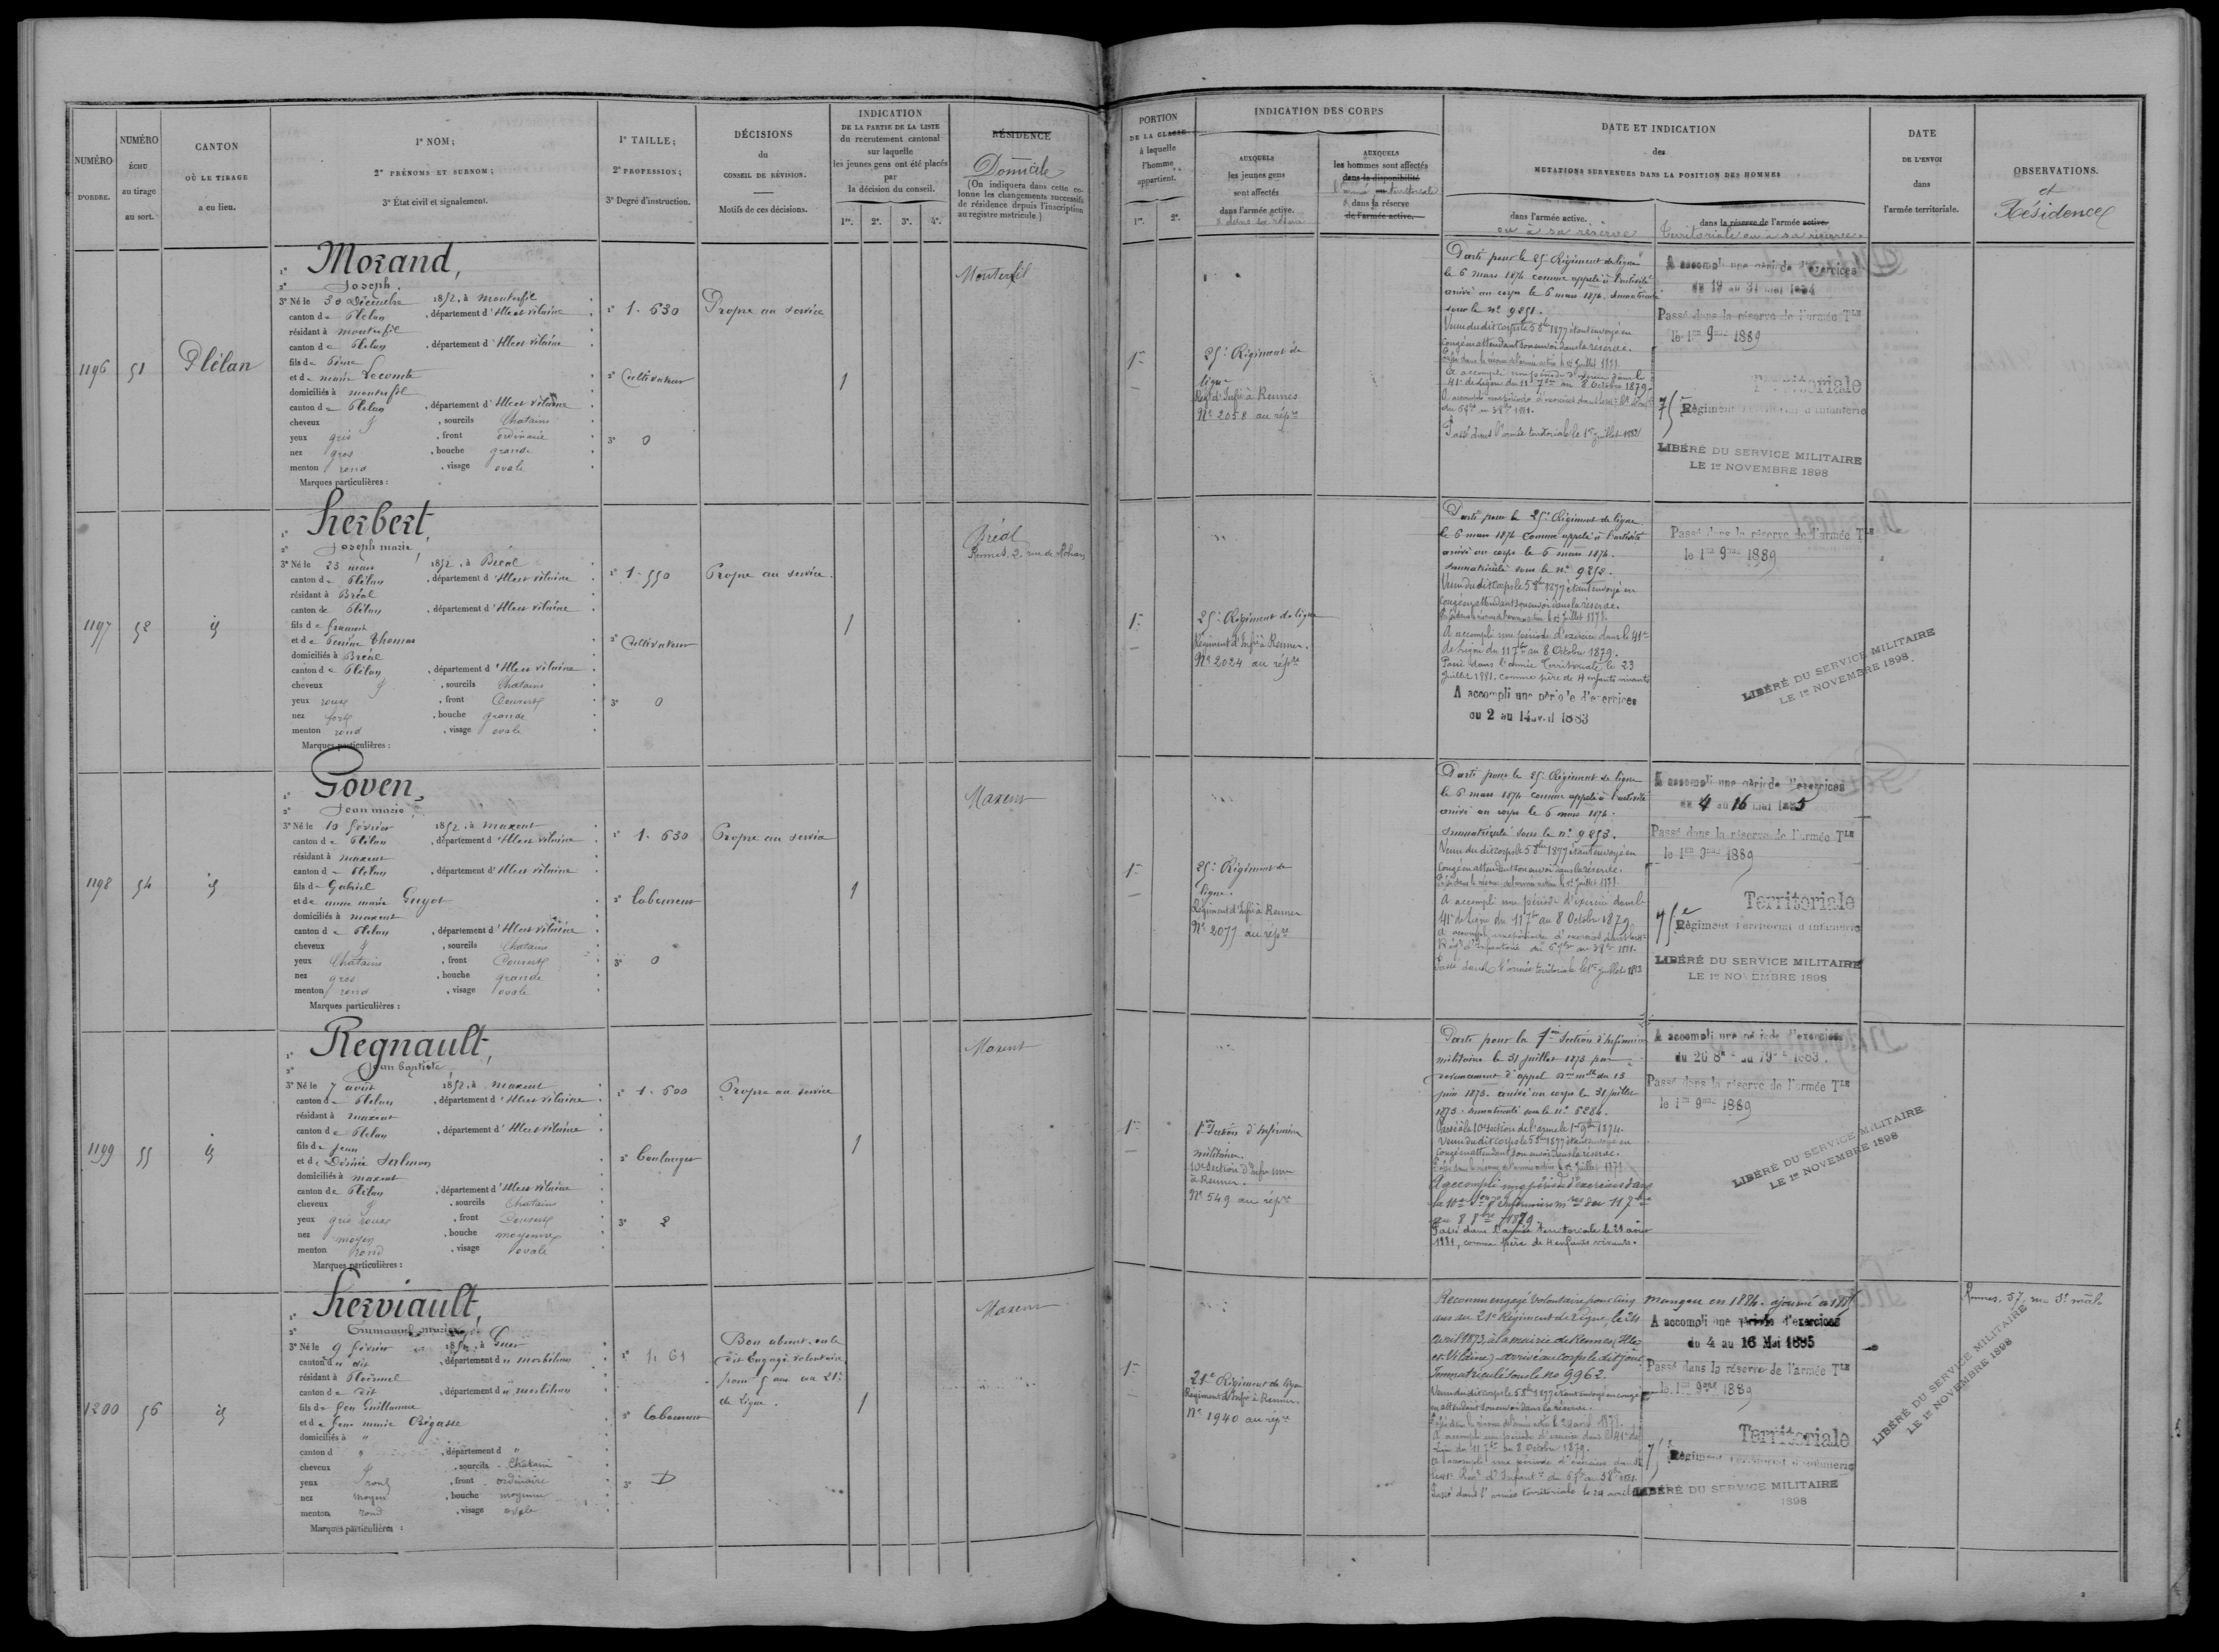 NUMÉRO
D'ORDRE.
NUMÉRO
ÉCHU
au tirage
au sort.
CANTON
OÙ LE TIRAGE
a eu lieu.
1° NOM;
2° PRÉNOMS ET SURNOM;
3° État civil et signalement.
1° TAILLE;
2° PROFESSION;
3° Degré d'instruction.
DÉCISIONS
du
CONSEIL DE RÉVISION.
Motifs de ces décisions.
INDICATION
DE LA PARTIE DE LA LISTE
du recrutement cantonal
sur laquelle
les jeunes gens ont été placés
par
la décision du conseil.
1re. 2e. 3e. 4e.
RÉSIDENCE
Domicile
(On indiquera dans cette co-
lonne les changements successifs
de résidence depuis l'inscription
au registre matricule.)
PORTION
DE LA CLASSE
à laquelle
l'homme
appartient.
1re. 2e.
INDICATION DES CORPS
AUXQUELS
les jeunes gens
sont affectés
dans l'armée active.
AUXQUELS
les hommes sont affectés
dans la disponibilité
dans la réserve
de l'armée active.
DATE ET INDICATION
des
MUTATIONS SURVENUES DANS LA POSITION DES HOMMES
dans l'armée active.
ou à sa réserve
dans la réserve de l'armée active.
Territoriale ou à sa réserve.
DATE
DE L'ENVOI
dans
l'armée territoriale.
OBSERVATIONS.
et
Résidence
1196
51
Plélan
1° Morand,
2° Joseph.
3° Né le 30 Décembre 1852, à Monterfil
canton de Plélan, département d'Ille et Vilaine
résidant à Monterfil
canton de Plélan, département d'Ille et Vilaine
fils de Pierre
et de Marie Lecomte
domiciliés à Monterfil
canton de Plélan, département d'Ille et Vilaine
cheveux, sourcils Chatains
yeux gris, front ordinaire
nez gros, bouche grande
menton rond, visage ovale
Marques particulières :
1° 1.630
2° Cultivateur
3° 0
Propre au service
1
Monterfil
1re
25e Régiment de
ligne
Régt d'Infie à Rennes
N° 2058 au répre
Parti pour le 25e Régiment de ligne
le 6 mars 1874 comme appelé à l'activité
arrivé au corps le 6 mars 1874, immatriculé
sous le n° 9851.
Venu du dit corps le 5 8bre 1877 étant envoyé en
congé en attendant son envoi dans la réserve.
A accompli une période d'exercices dans le
41e de Ligne du 11 7bre au 8 Octobre 1879.
Passé dans l'armée territoriale le 1er juillet 1883
A accompli une période d'exercices
du 19 au 31 mai 1884
Passé dans la réserve de l'armée Tle
le 1er 9bre 1889
Territoriale
75e Régiment Territorial d'Infanterie
LIBÉRÉ DU SERVICE MILITAIRE
LE 1er NOVEMBRE 1898
1197
52
id
1° Herbert,
2° Joseph Marie,
3° Né le 23 mars 1852, à Bréal
canton de Plélan, département d'Ille et Vilaine
résidant à Bréal
canton de Plélan, département d'Ille et Vilaine
fils de François
et de Perrine Thomas
domiciliés à Bréal
canton de Plélan, département d'Ille et Vilaine
cheveux, sourcils Chatains
yeux roux, front Couvert
nez fort, bouche grande
menton rond, visage ovale
Marques particulières :
1° 1.550
2° Cultivateur
3° 0
Propre au service.
1
Bréal
Rennes, 2, rue de Rohan
1re
25e Régiment de ligne
Régiment d'Infie à Rennes.
N° 2024 au répre
Parti pour le 25e Régiment de ligne
le 6 mars 1874 comme appelé à l'activité
arrivé au corps le 6 mars 1874.
immatriculé sous le n° 9852.
Venu du dit corps le 5 8bre 1877 étant envoyé en
congé en attendant son envoi dans la réserve.
A accompli une période d'exercices dans le 41e
de Ligne du 11 7bre au 8 Octobre 1879.
Passé dans l'armée Territoriale le 23
juillet 1881, comme père de 4 enfants vivants
A accompli une période d'exercices
du 2 au 14 avril 1883
Passé dans la réserve de l'armée Tle
le 1er 9bre 1889
LIBÉRÉ DU SERVICE MILITAIRE
LE 1er NOVEMBRE 1898.
1198
54
id
1° Goven,
2° Jean Marie,
3° Né le 10 février 1852, à Maxent
canton de Plélan, département d'Ille et Vilaine
résidant à Maxent
canton de Plélan, département d'Ille et Vilaine
fils de Gabriel
et de Anne Marie Guyot
domiciliés à Maxent
canton de Plélan, département d'Ille et Vilaine
cheveux, sourcils Chatains
yeux Chatains, front Couvert
nez gros, bouche grande
menton rond, visage ovale
Marques particulières :
1° 1.630
2° Laboureur
3° 0
Propre au service
1
Maxent
1re
25e Régiment de
ligne.
Régiment d'Infie à Rennes
N° 2077 au répre
Parti pour le 25e Régiment de ligne
le 6 mars 1874 comme appelé à l'activité
arrivé au corps le 6 mars 1874.
immatriculé sous le n° 9853.
Venu du dit corps le 5 8bre 1877 étant envoyé en
congé en attendant son envoi dans la réserve.
A accompli une période d'exercices dans le
41e de Ligne du 11 7bre au 8 Octobre 1879
Passé dans l'armée territoriale le 1er juillet 1883
A accompli une période d'exercices
du 4 au 16 mai 1885
Passé dans la réserve de l'armée Tle
le 1er 9bre 1889
Territoriale
75e Régiment Territorial d'Infanterie
LIBÉRÉ DU SERVICE MILITAIRE
LE 1er NOVEMBRE 1898
1199
55
id
1° Regnault,
2° Jean Baptiste,
3° Né le 7 août 1852, à Maxent
canton de Plélan, département d'Ille et Vilaine
résidant à Maxent
canton de Plélan, département d'Ille et Vilaine
fils de Jean
et de Désirée
domiciliés à Maxent
canton de Plélan, département d'Ille et Vilaine
cheveux, sourcils Chatains
yeux gris roux, front Couvert
nez moyen, bouche moyenne
menton rond, visage ovale
Marques particulières :
1° 1.600
2° Boulanger
3° 2
Propre au service
1
Maxent
1re
1re Section d'Infirmiers
militaires.
10e Section d'Infirmiers
à Rennes.
N° 549 au répre
Parti pour la 1re Section d'Infirmiers
militaires le 31 juillet 1873 par
devancement d'appel du 13
juin 1873. arrivé au corps le 31 juillet
1873. immatriculé sous le n° 5284.
Passé à la 10e section de l'arme le 1er 9bre 1874.
Venu du dit corps le 5 8bre 1877 étant envoyé en
congé en attendant son envoi dans la réserve.
A accompli une période d'exercices dans
la 10e d'infirmiers mres du 11 7bre
au 8 8bre 1879
Passé dans l'armée territoriale le 21 août
1881, comme père de 4 enfants vivants.
A accompli une période d'exercices
du 26 8bre au 7 9bre 1883.
Passé dans la réserve de l'armée Tle
le 1er 9bre 1889
LIBÉRÉ DU SERVICE MILITAIRE
LE 1er NOVEMBRE 1898
1200
56
id
1° Herviault,
2° Emmanuel Marie
3° Né le 9 février 1852, à Guer
canton du dit, département du Morbihan
résidant à Ploërmel
canton du dit, département du Morbihan
fils de feu Guillaume
et de feue Marie
domiciliés à "
canton d ", département d "
cheveux, sourcils Chatain
yeux roux, front ordinaire
nez moyen, bouche moyenne
menton rond, visage ovale
Marques particulières :
1° 1.61
2° Laboureur
3° D
Bon absent
dit Engagé volontaire
pour 5 ans au 21e
de Ligne.
1
Maxent
1re
21e Régiment de ligne
Régiment d'Infie à Rennes.
N° 1940 au répre
Reconnu engagé volontaire pour cinq
ans au 21e Régiment de Ligne, le 24
avril 1873, à la mairie de Rennes (Ille
et-Vilaine) arrivé au corps le dit jour
Immatriculé sous le no 9962.
Venu du dit corps le 5 8bre 1877 étant envoyé en congé
en attendant son envoi dans la réserve.
A accompli une période d'exercices dans le 41e de
Ligne du 11 7bre au 8 Octobre 1879.
Passé dans l'armée territoriale le 24 avril
Manqué en 1884. ajourné à 1885
A accompli une période d'exercices
du 4 au 16 Mai 1885
Passé dans la réserve de l'armée Tle
le 1er 9bre 1889
Territoriale
75e Régiment Territorial d'Infanterie
LIBÉRÉ DU SERVICE MILITAIRE
1898
LIBÉRÉ DU SERVICE MILITAIRE
LE 1er NOVEMBRE 1898
Rennes, 57, rue St Malo